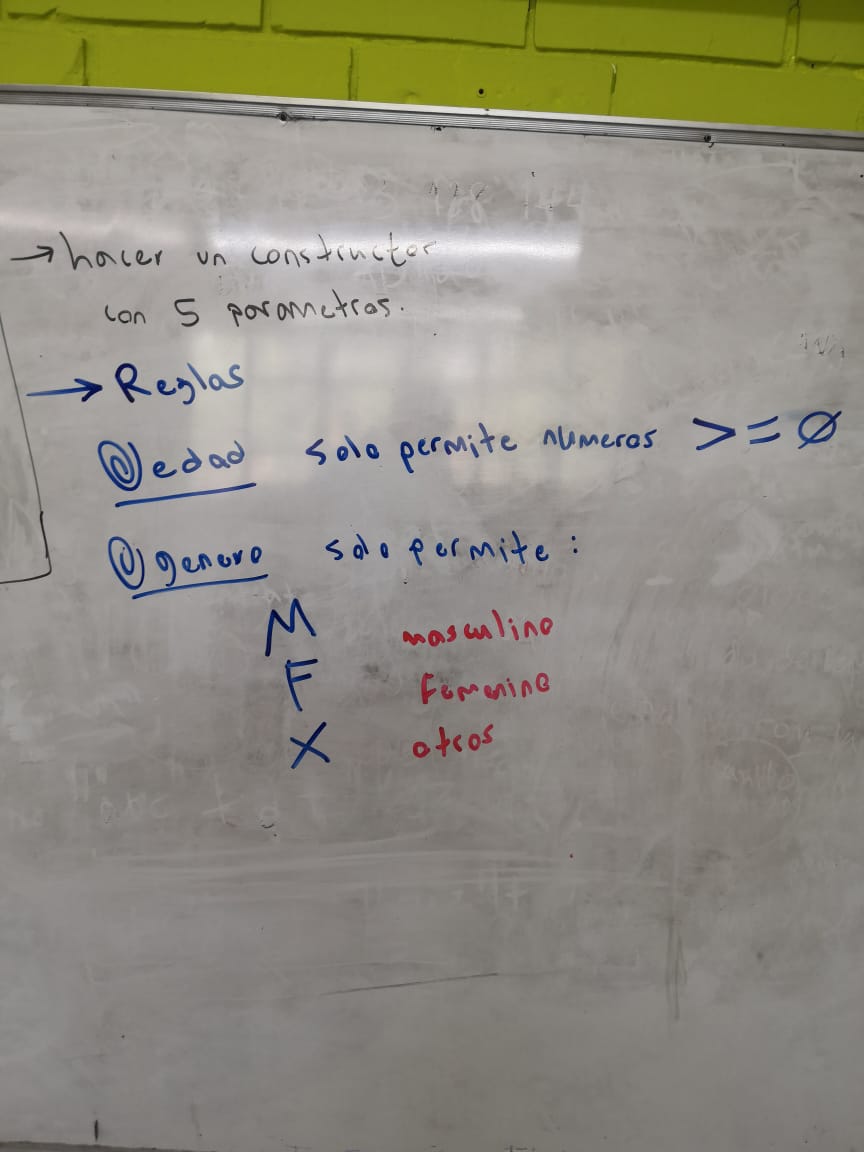 → hacer un constructor
con 5 parametros.
→ Reglas
@edad solo permite numeros >= Ø
@genero solo permite:
M masculino
F Femenino
X otros